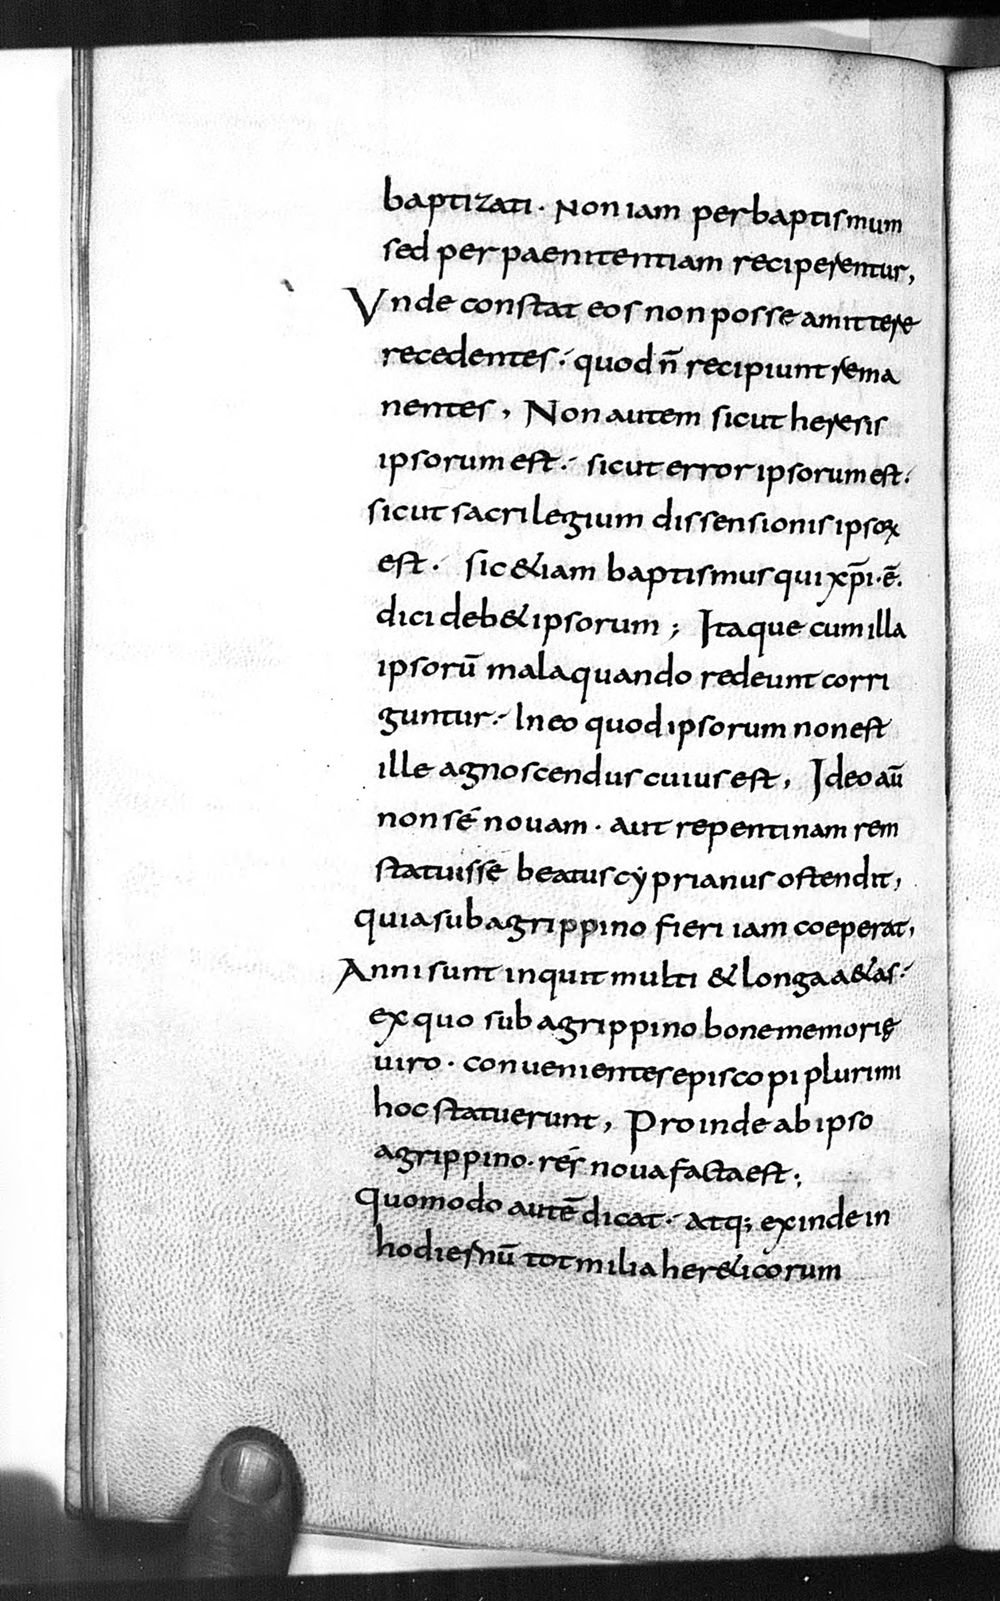 baptizati · Non iam per baptismum
sed per paenitentiam reciperentur,
Vnde constat eos non posse amittere
recedentes · quod n̄ recipiunt rema
nentes, Non autem sicut heresis
ipsorum est · sicut error ipsorum est ·
sicut sacrilegium dissensionis ipsoꝝ
est · sic &iam baptismus qui xp̄i · ē.
dici deb& ipsorum ; Itaque cum illa
ipsorū mala quando redeunt corri
guntur · In eo quod ipsorum non est
ille agnoscendus cuius est, Ideo aū
non sé nouam · aut repentinam rem
statuisse beatus cẏprianus ostendit,
quia sub agrippino fieri iam coeperat,
Anni sunt inquit multi & longa a&as ·
ex quo sub agrippino bone memorię
uiro · conuenientes episcopi plurimi
hoc statuerunt, Proinde ab ipso
agrippino · rés noua facta est ;
quomodo autē dicat · atq; exinde in
hodiernū tot milia her&icorum